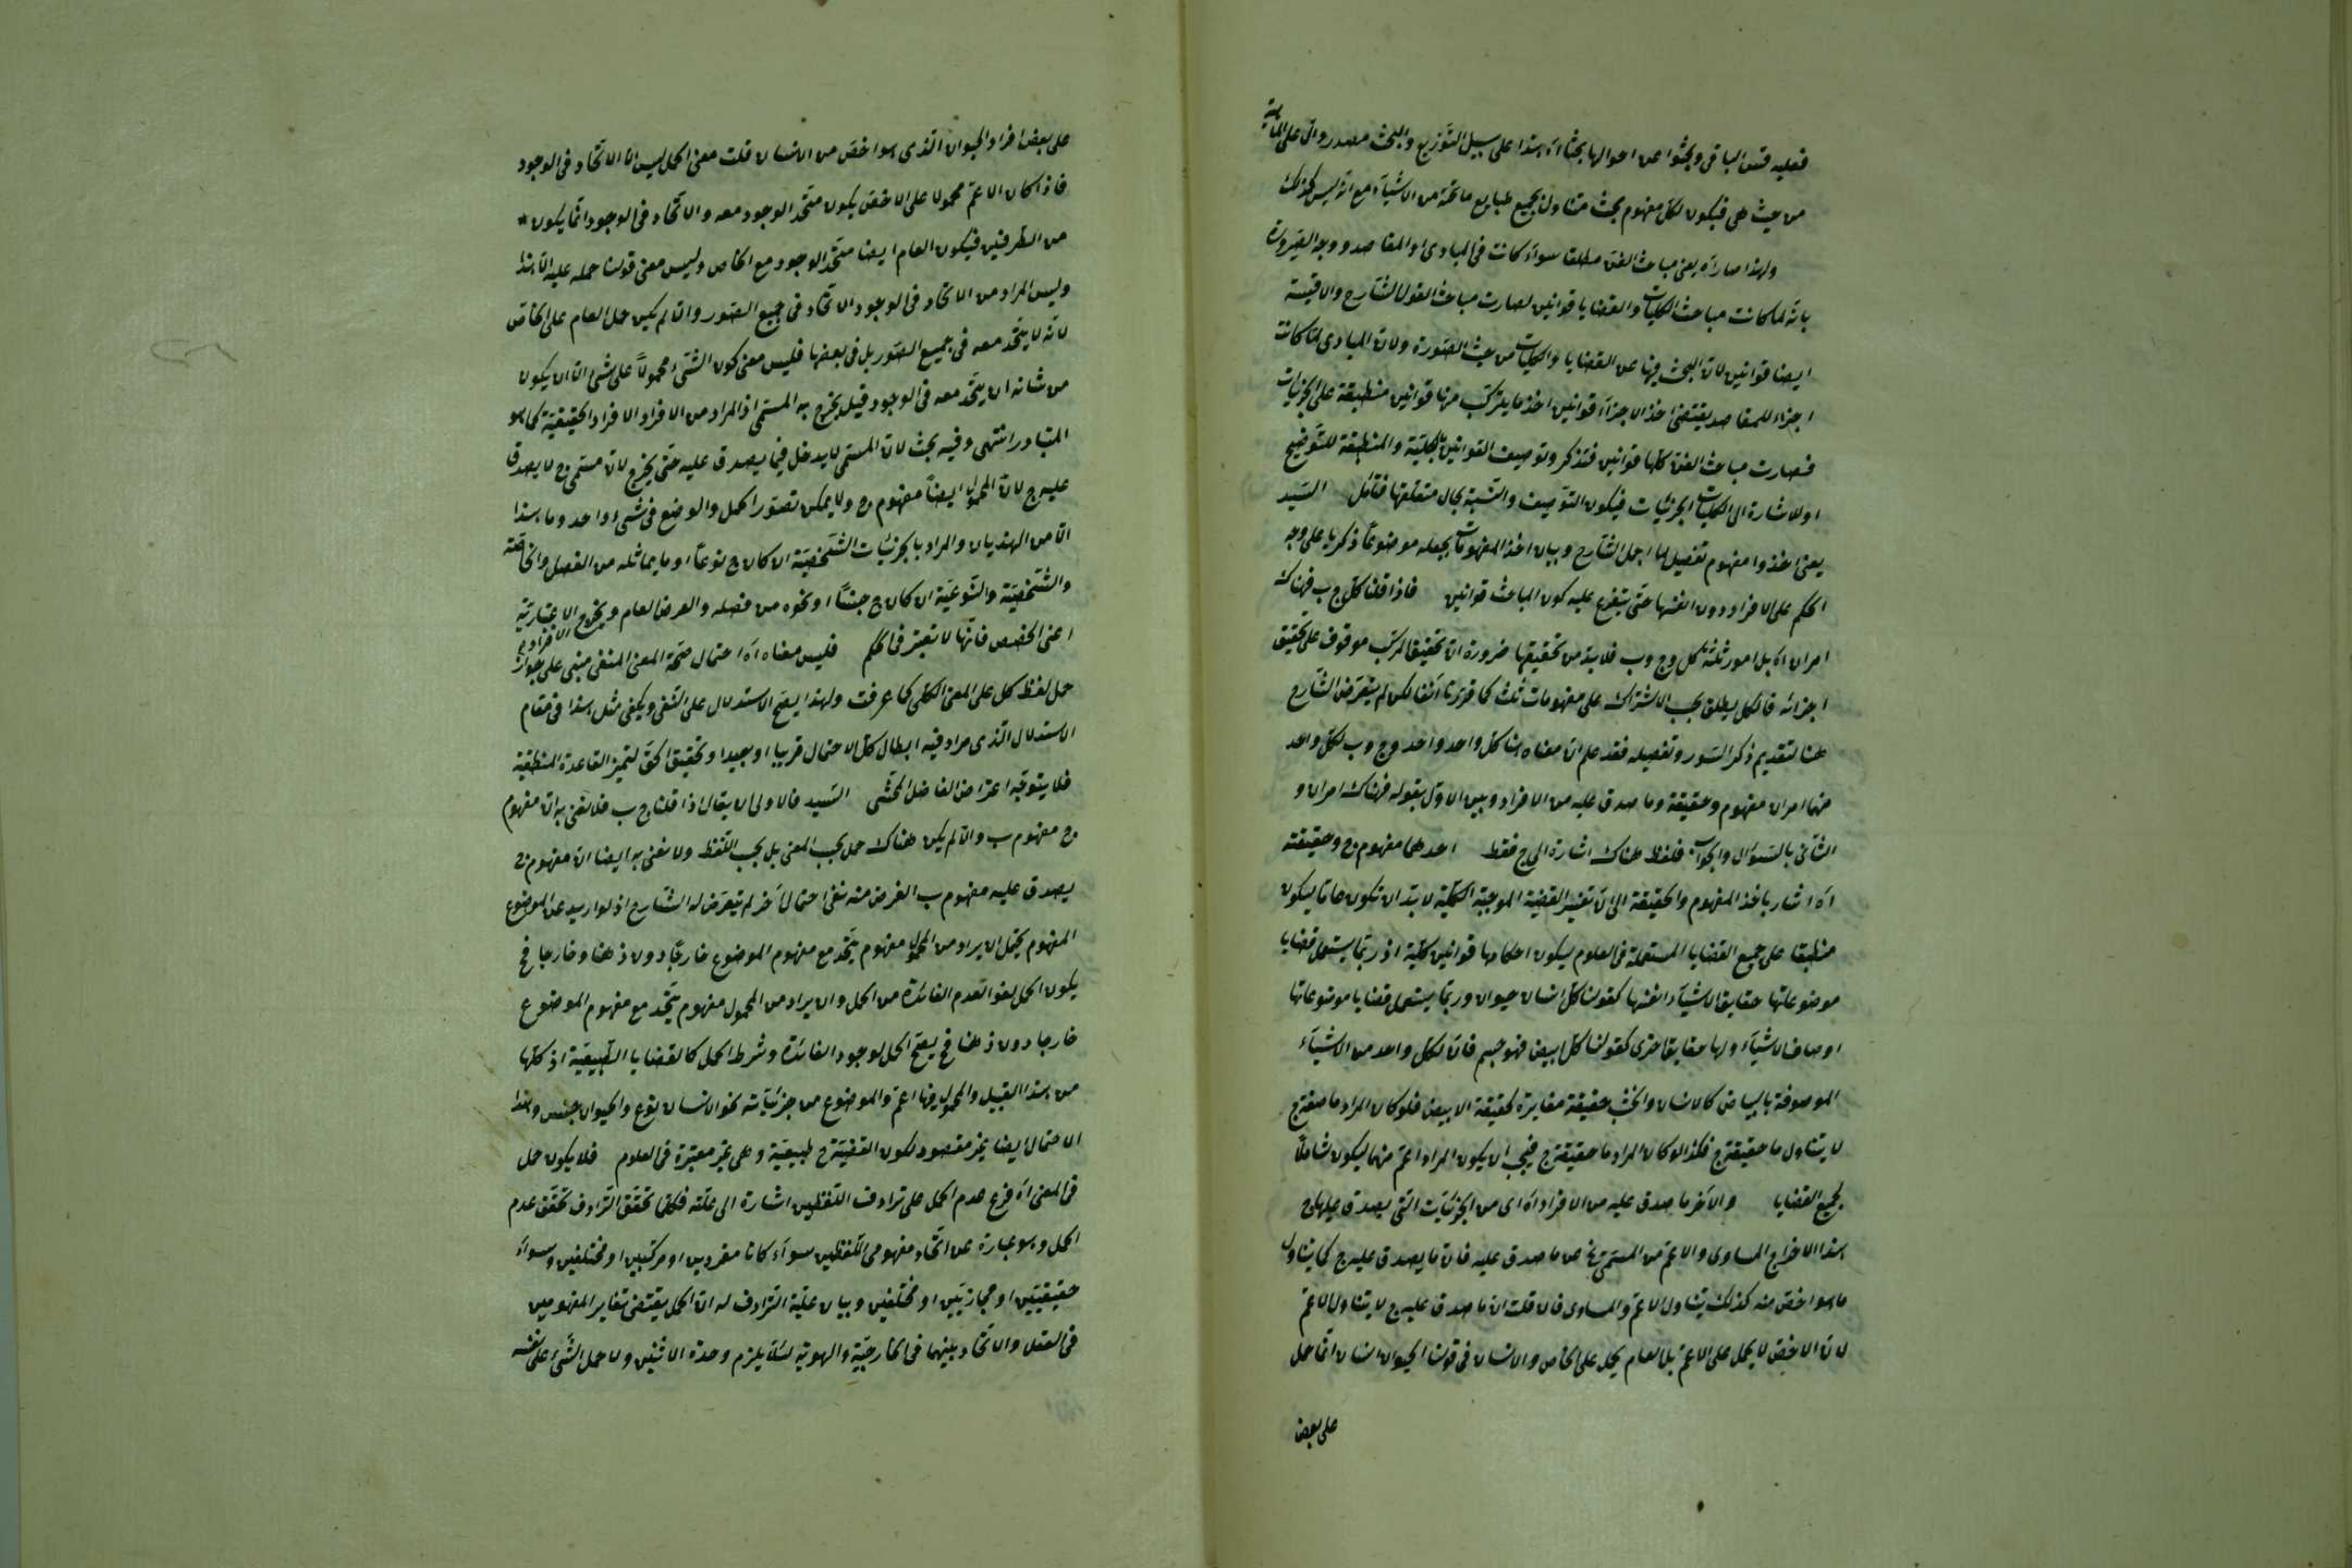 فعليه قس الباقى وبحثوا عن احوالها بحثا اه هذا على سبيل التوزيع والبحث مصدر دال على الماهية
من حيث هى فيكون لكل مفهوم بحث متناول بجميع طبايع ما تحته من الاشياء مع انه ليس كذلك
ولهذا صار اه يعنى مباحث الفن مطلقا سواء كانت فى المبادى او المقاصد ووجه الضرورة
بانه لما كانت مباحث الكليات والقضايا قوانين لصارت مباحث القول الشارح والاقيسة
ايضا قوانين لان البحث فيها عن القضايا والكليات من حيث الصورة ولان المبادى لما كانت
اجزاء للمقاصد يقتضى اخذ الاجزاء قوانين اخذ ما يتركب منها قوانين منطبقة على الجزئيات
فصارت مباحث الفن كلها قوانين فتذكر وتوصيف القوانين بالكلية والمنطبقة للتوضيح
او للاشارة الى الكليات الجزئيات فيكون التوصيف والنسبة بحال متعلقها فتأمل السيد
يعنى اخذوا مفهوم تفصيل لما اجمل الشارح وبيان اخذ المفهومات بجعله موضوعا ذكريا على وجه
الحكم على الافراد دون انفسها حتى يتفرع عليه كون المباحث قوانين فاذا قلنا كل ج ب فهناك
امران اه بل امور ثلثة كل وج وب فلا بد من تحقيقها ضرورة ان تحقيق المركب موقوف على تحقيق
اجزائه فالكل يطلق بحسب الاشتراك على مفهومات ثلث كما قررنا آنفا لكن لم يتعرض الشارح
هنا لتقديم ذكر السور وتفصيله فقد علم ان معناه هنا كل واحد واحد وج وب لكل واحد
منهما امران مفهوم وحقيقة وما صدق عليه من الافراد وبين الاول بقوله فهناك امران و
الثانى بالسؤال والجواب فلفظ هناك اشارة الى ج فقط احدهما مفهوم ج وحقيقته
اه اشار باخذ المفهوم والحقيقة الى ان تفسير القضية الموجبة الكلية لا بد ان تكون عاما ليكون
منطبقا على جميع القضايا المستعملة فى العلوم ليكون احكامها قوانين كلية اذ ربما يستعمل قضايا
موضوعاتها حقايق الاشياء انفسها كقولنا كل انسان حيوان وربما يستعمل قضايا موضوعاتها
اوصاف الاشياء ولها حقايق اخرى كقولنا كل ابيض فهو جسم فان لكل واحد من الاشياء
الموصوفة بالبياض كالانسان والخشب حقيقة مغايرة لحقيقة الابيض فلو كان المراد ما صفته ج
لا يتناول ما حقيقته ج فكذا لو كان المراد ما حقيقته ج فيجب ان يكون المراد اعم منهما ليكون شاملا
لجميع القضايا والآخر ما صدق عليه من الافراد اه اى من الجزئيات التى يصدق عليها ج
هذا الاخراج المساوى والاعم من المسمى ج عن ما صدق عليه فان ما يصدق عليه ج كما يتناول
ما هو اخص منه كذلك يتناول الاعم والمساوى فان قلت ان ما صدق عليه ج لا يتناول الاعم
لان الاخص لا يحمل على الاعم بل العام يحمل على الخاص والانسان فى قولنا الحيوان انسان انما حمل
على بعض
على بعض افراد الحيوان الذى هو اخص من الانسان قلت معنى الحمل ليس الا الاتحاد فى الوجود
فاذا كان الاعم محمولا على الاخص يكون متحد الوجود معه والاتحاد فى الوجود انما يكون
من الطرفين فيكون العام ايضا متحد الوجود مع الخاص وليس معنى قولنا حمله عليه الا هذا
وليس المراد من الاتحاد فى الوجود الاتحاد فى جميع الصور والا لم يكن حمل العام على الخاص
لانه لا يتحد معه فى جميع الصور بل فى بعضها فليس معنى كون الشئ محمولا على شئ الا ان يكون
من شانه ان يتحد معه فى الوجود قيل يخرج به المسمى اذ المراد من الافراد الافراد الحقيقية كما هو
المتبادر انتهى وفيه بحث لان المسمى لا يدخل فيما يصدق عليه حتى يخرج لان مسمى ج لا يصدق
عليه ج لان المحمول ايضا مفهوم ج ولا يمكن تصور الحمل والوضع فى شئ واحد وما هذا
الا من الهذيان والمراد بالجزئيات الشخصية ان كان ج نوعا او ما يماثله من الفصل والخاصة
والشخصية والنوعية ان كان ج جنسا او نحوه من فصله والعرض العام ويخرج الافراد الاعتبارية
اعنى الحصص فانها لا تعتبر فى الحكم فليس معناه اه احتمال صحة المعنى المنفى مبنى على جواز
حمل لفظ كل على المعنى الكلى كما عرفت ولهذا يصح الاستدلال على النفى ويكفى مثل هذا فى مقام
الاستدلال الذى مراد فيه ابطال كل الاحتمال قريبا او بعيدا وتحقيق الحق لتميز القاعدة المنطقية
فلا يتوجه اعتراض الفاضل المحشى السيد فالاولى ان يقال اذا قلنا ج ب فلا نعنى به ان مفهوم
ج مفهوم ب والا لم يكن هناك حمل بحسب المعنى بل بحسب اللفظ ولا نعنى به ايضا ان مفهوم ج
يصدق عليه مفهوم ب الغرض منه نفى احتمال آخر لم يتعرض له الشارح اذ لو اريد عن الموضوع
المفهوم يحتمل ان يراد من المحمول مفهوم يتحد مع مفهوم الموضوع خارجا دون ذهنا وخارجا فح
يكون الحمل لغوا لعدم الفائدة من الحمل وان يراد من المحمول مفهوم يتحد مع مفهوم الموضوع
خارجا دون ذهنا فح يصح الحمل لوجود الفائدة وشرط الحمل كالقضايا الطبيعية اذ كلها
من هذا القبيل والمحمول فيها اعم والموضوع من جزئياته نحو الانسان نوع والحيوان جنس وهذا
الاحتمال ايضا غير مقصود لكون القضية ح طبيعية وهى غير معتبرة فى العلوم فلا يكون حمل
فى المعنى اه فرع عدم الحمل على ترادف اللفظين اشارة الى علته فكلما تحقق الترادف تحقق عدم
الحمل وهو عبارة عن اتحاد مفهومى اللفظين سواء كانا مفردين او مركبين او مختلفين وسواء
حقيقيين او مجازيين او مختلفين وبيان علية الترادف له ان الحمل يقتضى تغاير المفهومين
فى العقل والاتحاد بينهما فى الخارجية والهوية لئلا يلزم وحدة الاثنين ولا حمل الشئ على نفسه